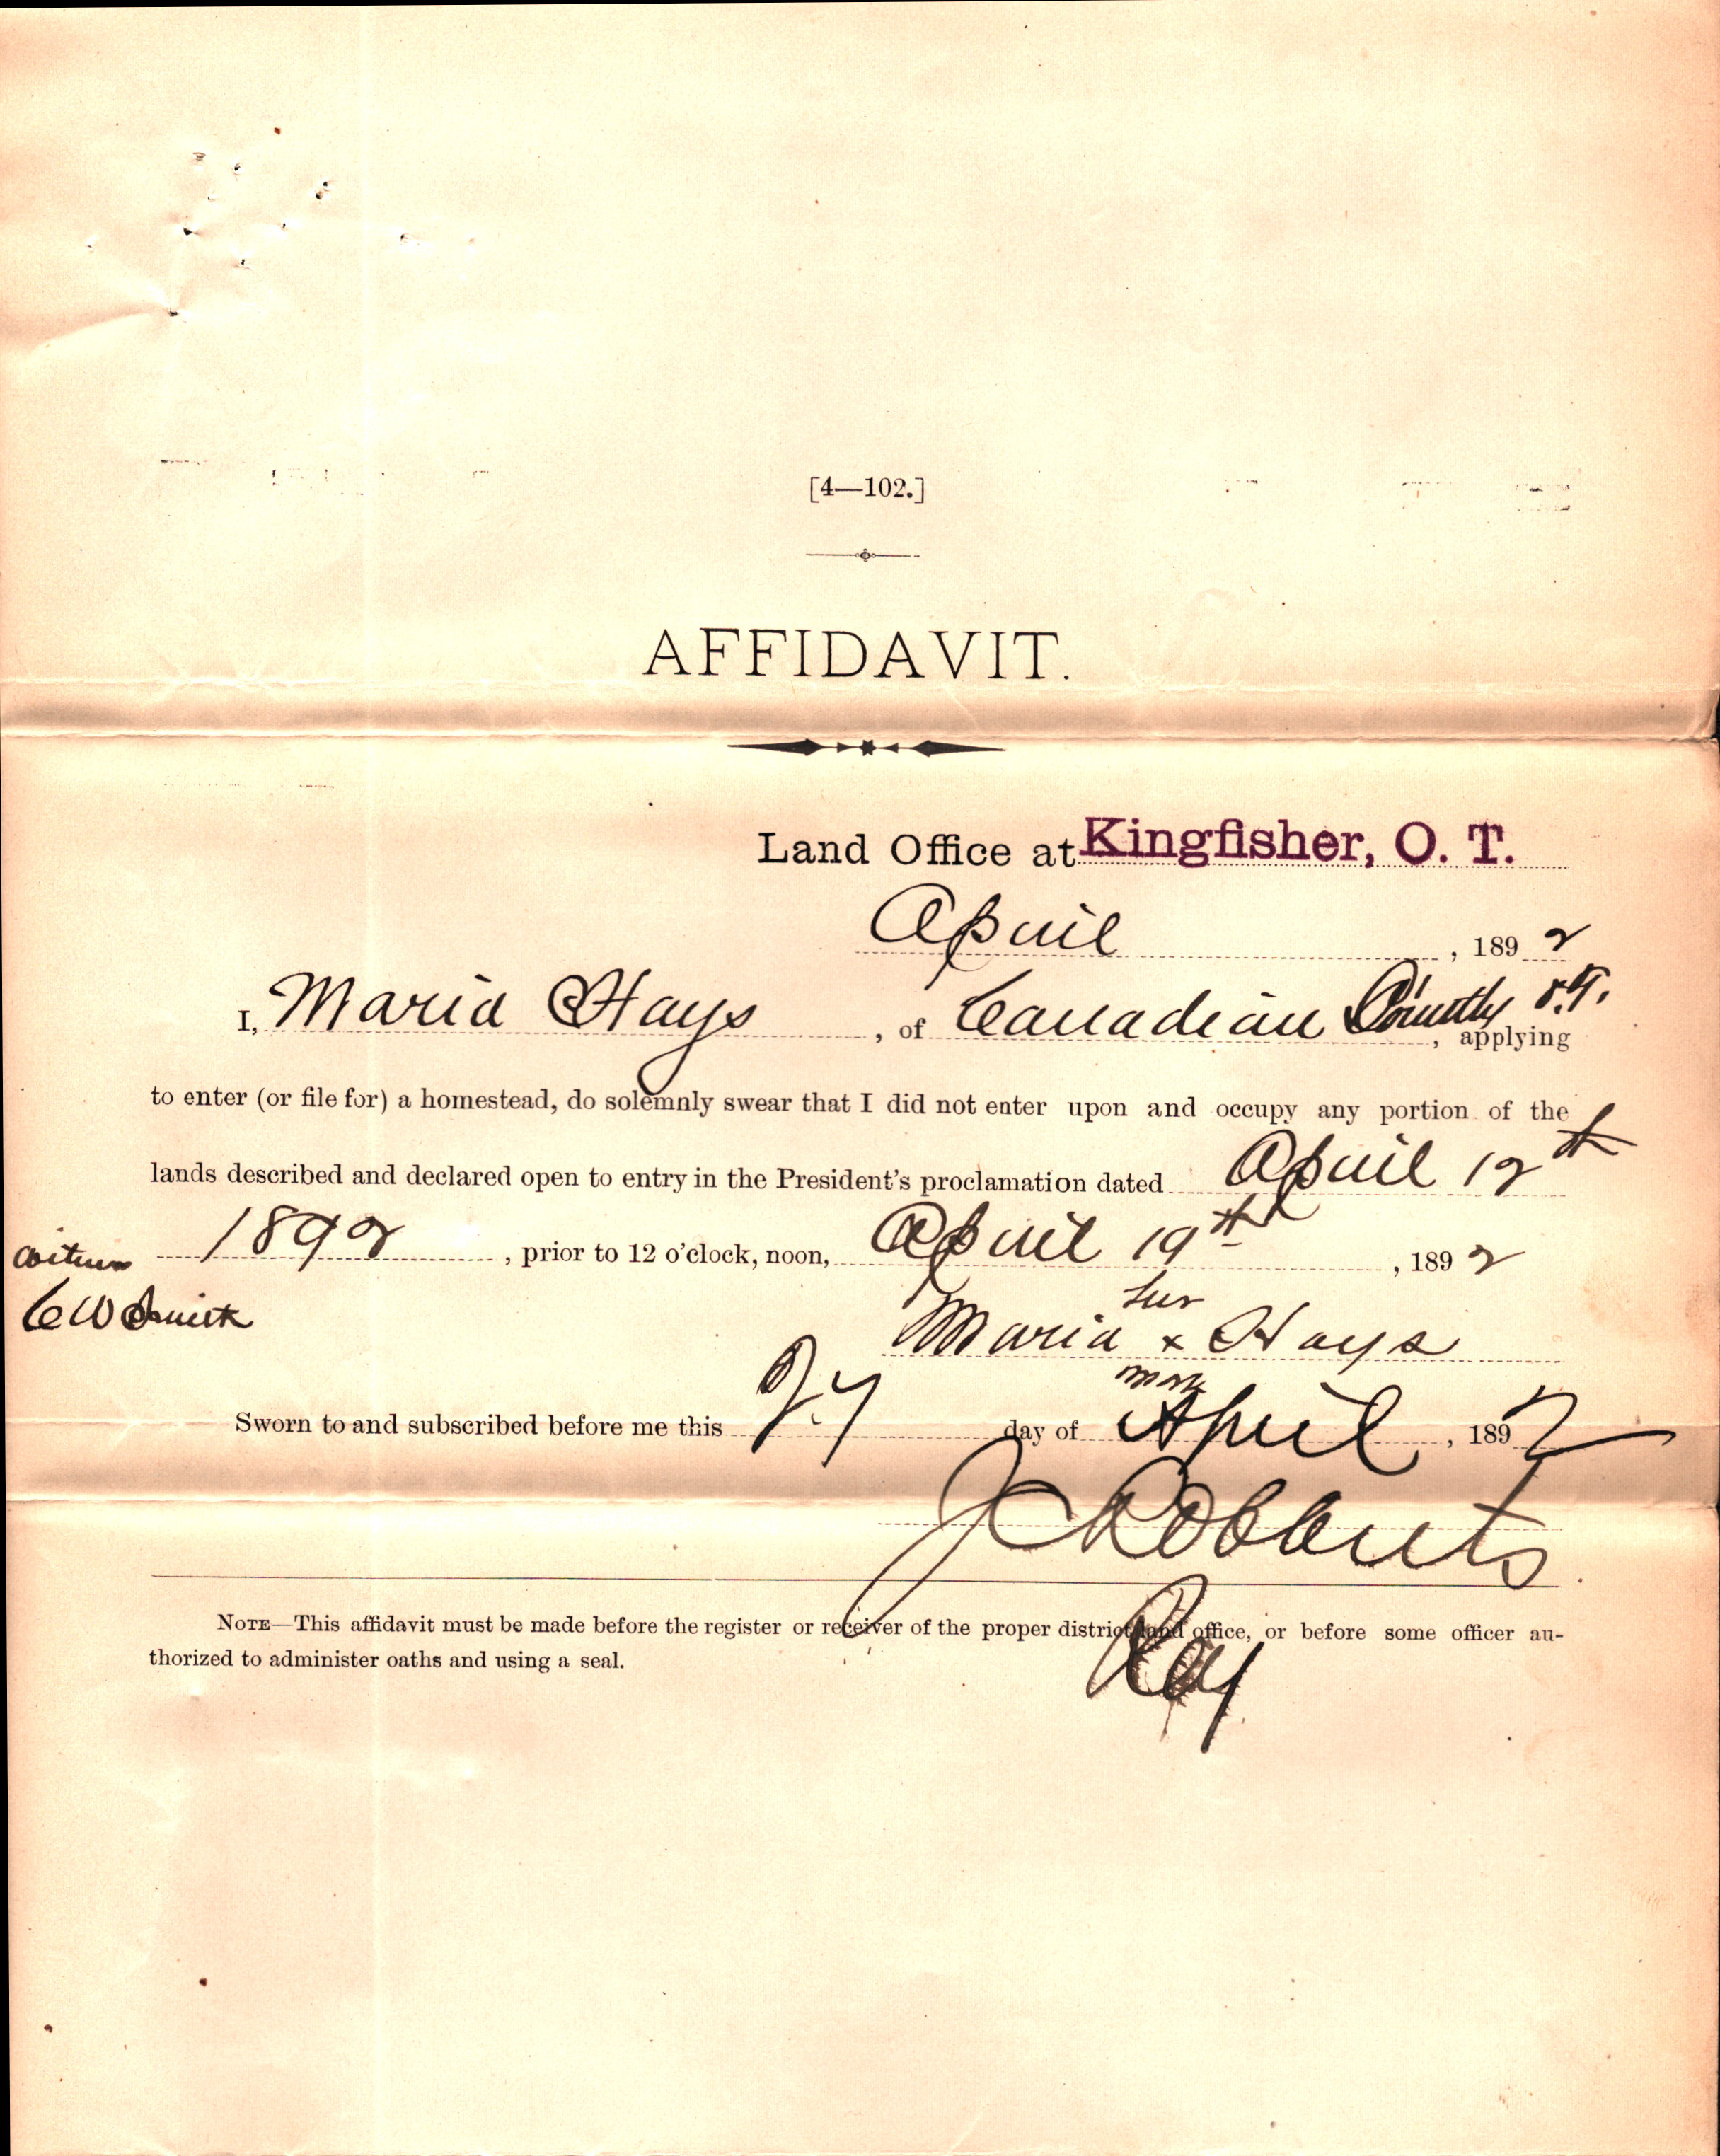 [4—102.]
AFFIDAVIT.
Land Office at Kingfisher, O. T.
April , 1892
I, Maria Hays , of Canadian County O.T. , applying
to enter (or file for) a homestead, do solemnly swear that I did not enter upon and occupy any portion of the
lands described and declared open to entry in the President's proclamation dated April 12th
1892 , prior to 12 o'clock, noon, April 19th , 1892
witness
C W Smith
her
Maria x Hays
mark
Sworn to and subscribed before me this 27 day of April , 1892
J C Robberts
Reg
NOTE—This affidavit must be made before the register or receiver of the proper district land office, or before some officer au-
thorized to administer oaths and using a seal.